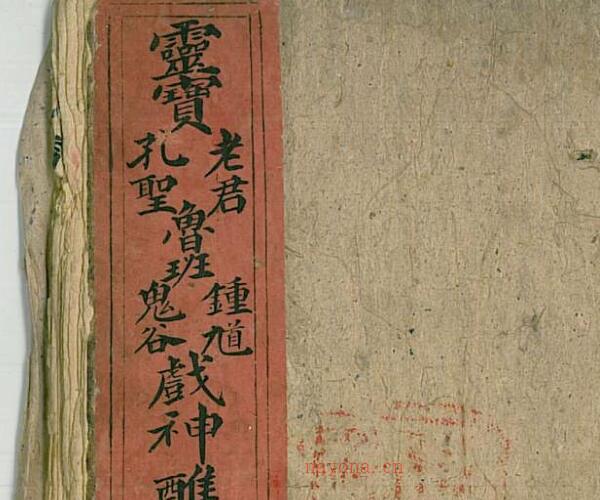 靈寶
老君
孔聖
魯班
鍾馗
鬼谷
戲神
醮
nayona.cn